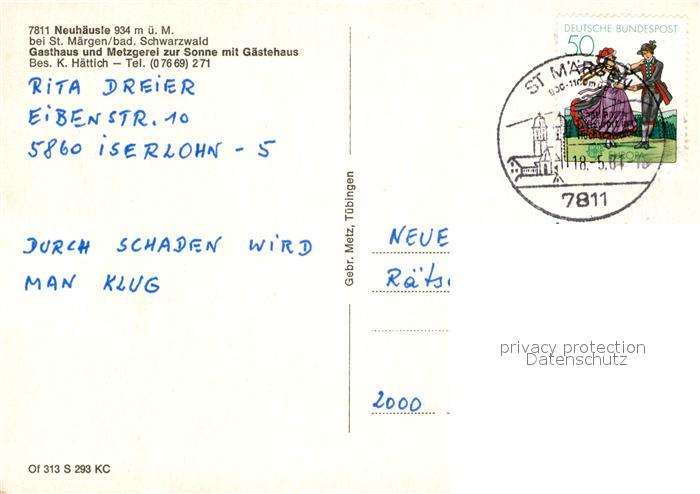 7811 Neuhäusle 934 m ü. M.
bei St. Märgen/bad. Schwarzwald
Gasthaus und Metzgerei zur Sonne mit Gästehaus
Bes. K. Hättich — Tel. (0 76 69) 2 71
RITA DREIER
EIBENSTR. 10
5860 ISERLOHN - 5
DURCH SCHADEN WIRD
MAN KLUG
Of 313 S 293 KC
Gebr. Metz, Tübingen
DEUTSCHE BUNDESPOST
50
ST MÄRGEN
900-1100m
EUROPA
18.-5.81
7811
NEUE
RÄTS
2000
privacy protection
Datenschutz